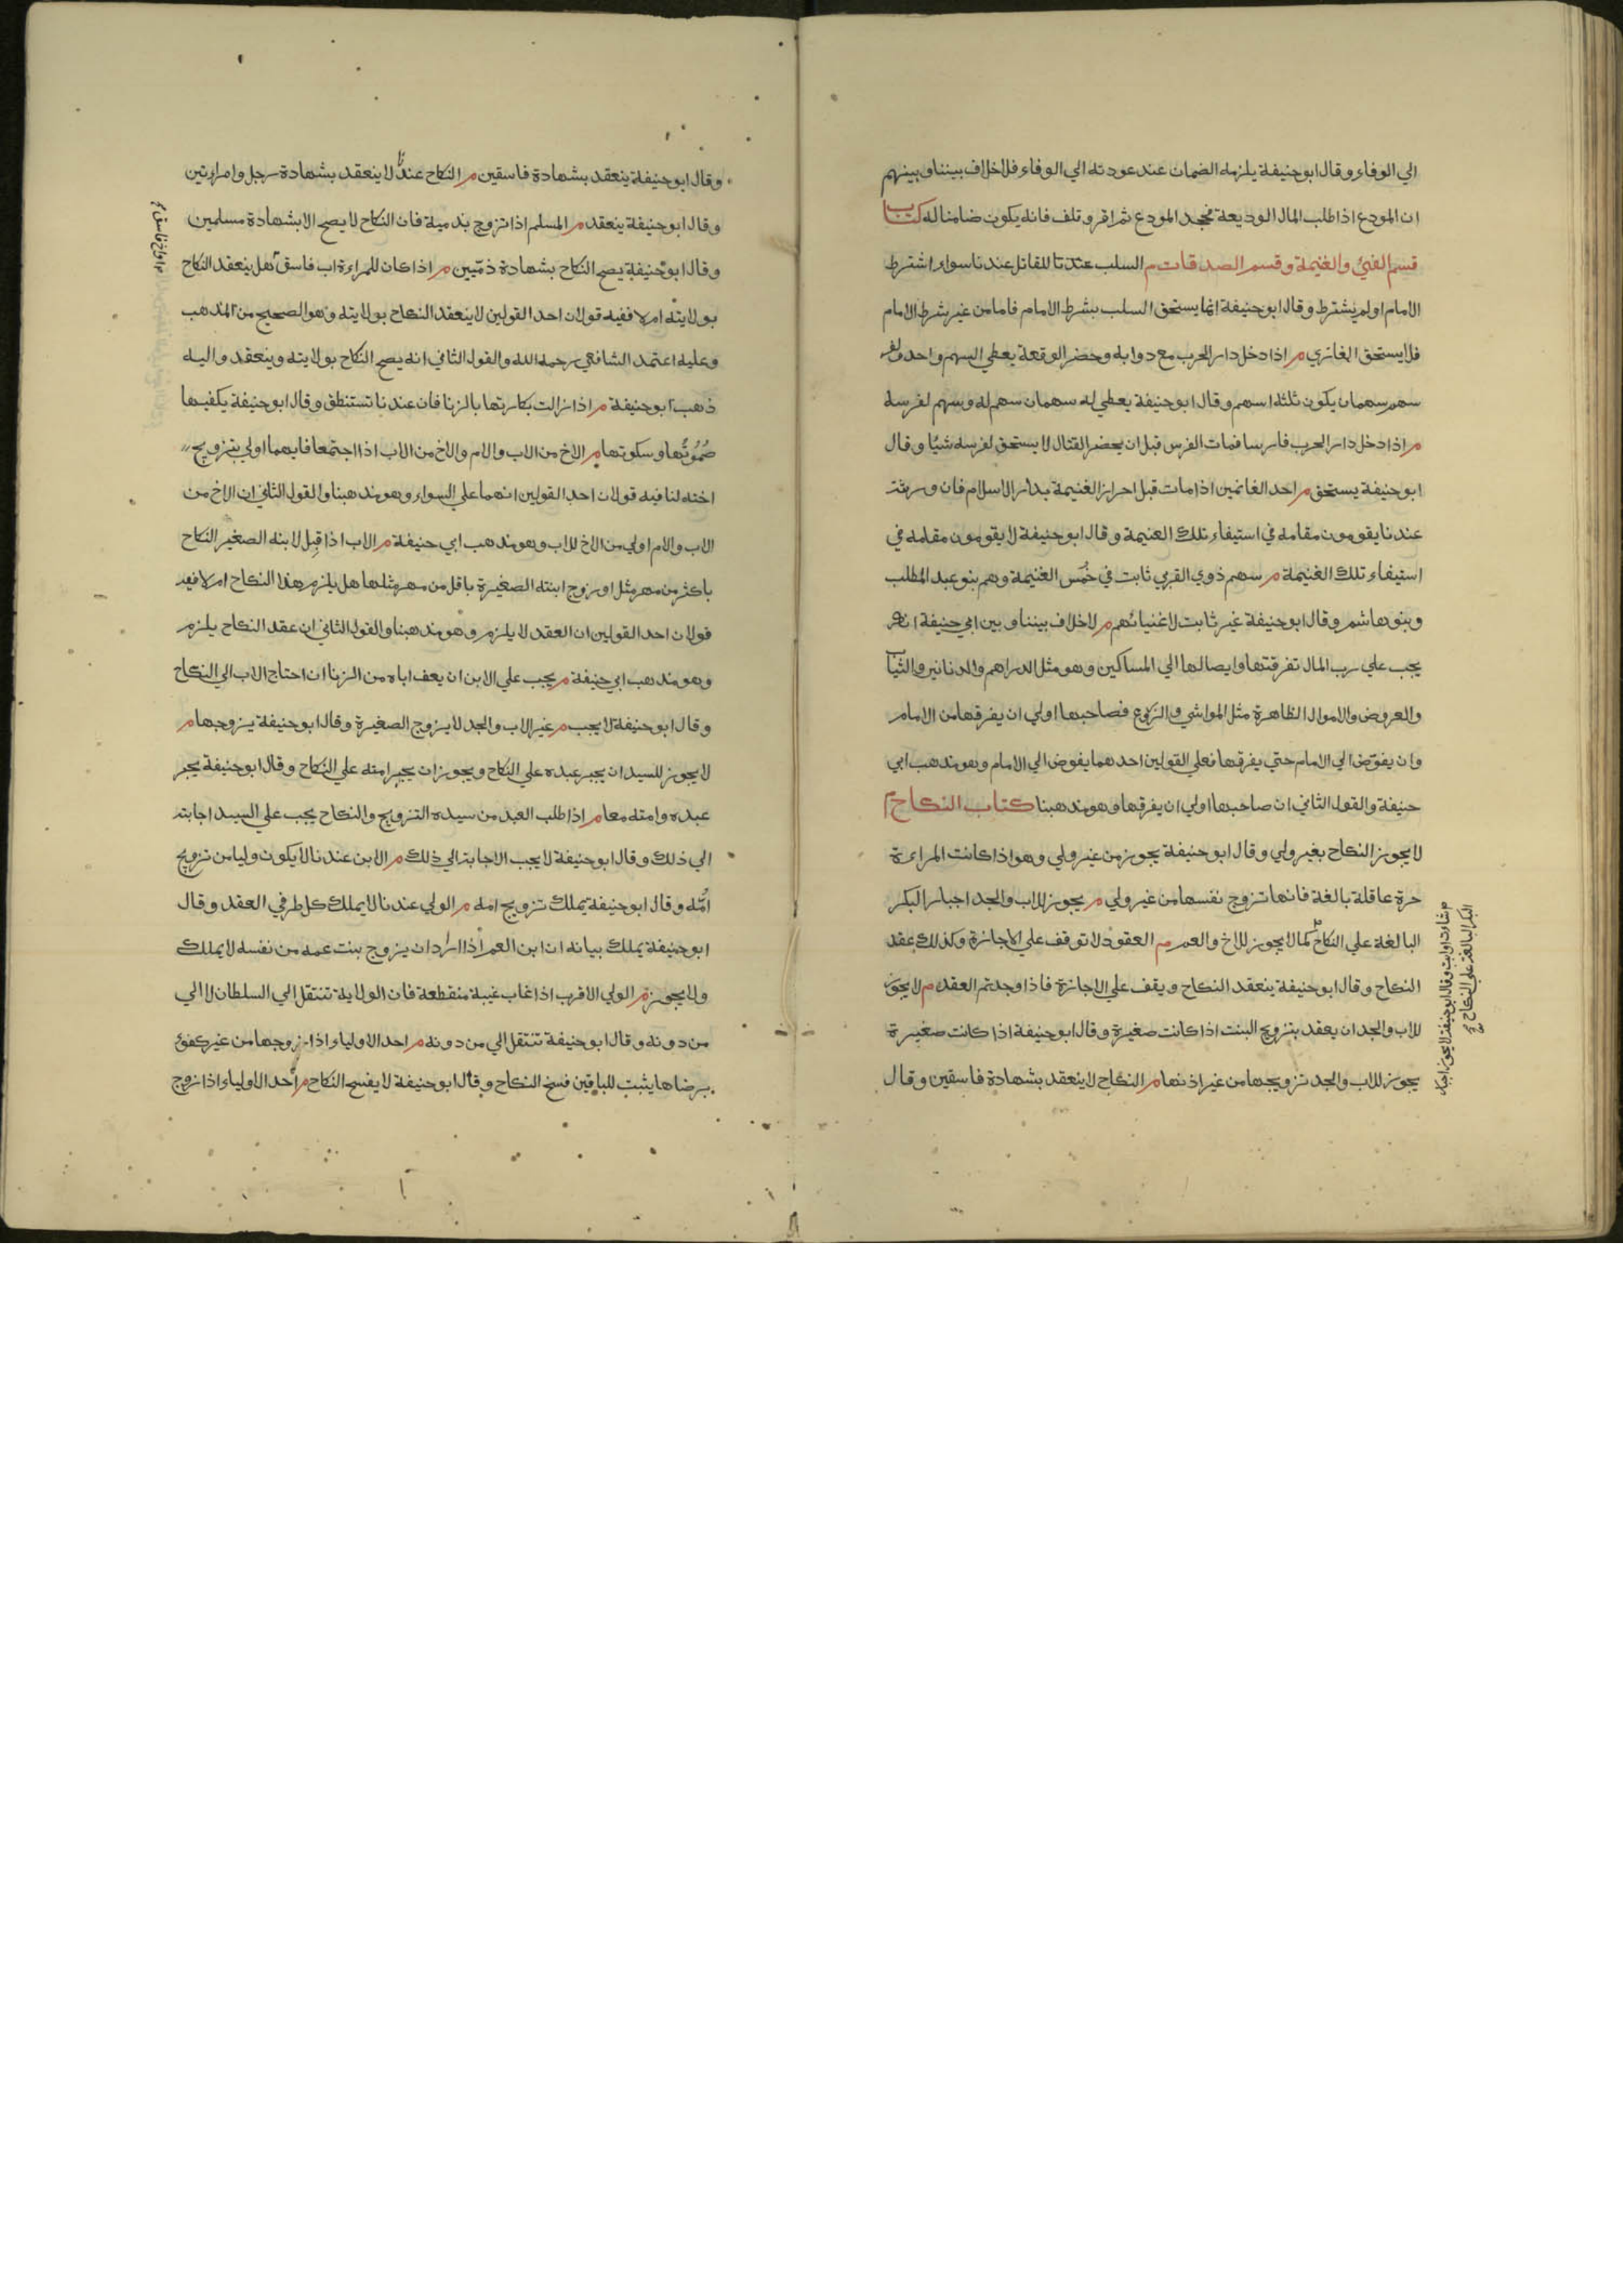 الي الوفاء وقال ابو حنيفة يلزمه الضمان عند عودته الي الوفاء فلا خلاف بيننا وبينهم
ان المودع اذا طلب المال الوديعة فجحد المودع ثم اقر وتلف فانه يكون ضامنا له كتاب
قسم الفيئ والغنيمة وقسم الصدقات م السلب عندنا للقاتل عندنا سواء اشترط
الامام او لم يشترط وقال ابو حنيفة انما يستحق السلب بشرط الامام فاما من غير شرط الامام
فلا يستحق الغازي م اذا دخل دار الحرب مع دوابه وحضر الوقعة يعطي السهم واحد
سهم سهمان يكون ثلثه اسهم وقال ابو حنيفة يعطي له سهمان سهم له وسهم لفرسه
م اذا دخل دار الحرب فارسا فمات الفرس قبل ان يحضر القتال لا يستحق لفرسه شيًا وقال
ابو حنيفة يستحق م احد الغانمين اذا مات قبل احراز الغنيمة بدار الاسلام فان ورثته
عندنا يقومون مقامه في استيفاء تلك الغنيمة وقال ابو حنيفة لا يقومون مقامه في
استيفاء تلك الغنيمة م سهم ذوي القربي ثابت في خُمس الغنيمة وهم بنو عبد المطلب
وبنو هاشم وقال ابو حنيفة غير ثابت لاغنيائهم م لا خلاف بيننا وبين ابي حنيفة انه
يجب علي رب المال تفرقتها وايصالها الي المساكين وهو مثل الدراهم والدنانير والثياب
والعروض والاموال الظاهرة مثل المواشي والزروع فصاحبها اولي ان يفرقها من الامام
وان يفوّض الي الامام حتي يفرقها فعلي القولين احدهما يفوض الي الامام وهو مذهب ابي
حنيفة والقول الثاني ان صاحبها اولي ان يفرقها وهو مذهبنا كتاب النكاح م
لا يجوز النكاح بغير ولي وقال ابو حنيفة يجوز من غير ولي وهو اذا كانت المراءة
حرة عاقلة بالغة فانها تزوج نفسها من غير ولي م يجوز للاب والجد اجبار البكر
البالغة علي النكاح كما لا يجوز للاخ والعم م العقود لا توقف علي الاجازة وكذلك عقد
النكاح وقال ابو حنيفة ينعقد النكاح ويقف علي الاجازة فاذا وجدتم العقد م لا يجوز
للاب والجد ان يعقد بتزويج البنت اذا كانت صغيرة وقال ابو حنيفة اذا كانت صغيرة
يجوز للاب والجد تزويجها من غير اذنها م النكاح لا ينعقد بشهادة فاسقين وقال
شاءت او ابت وقال ابو حنيفة لا يجوز اجبار
البكر البالغة علي النكاح
وقال ابو حنيفة ينعقد بشهادة فاسقين م النكاح عندنا لا ينعقد بشهادة رجل وامراءتين
وقال ابو حنيفة ينعقد م المسلم اذا تزوج بذمية فان النكاح لا يصح الا بشهادة مسلمين
وقال ابو حنيفة يصح النكاح بشهادة ذمّيين م اذا كان للمراءة اب فاسق هل ينعقد النكاح
بولايته ام لا ففيه قولان احد القولين لا ينعقد النكاح بولايته وهو الصحيح من المذهب
وعليه اعتمد الشافعي رحمه الله والقول الثاني انه يصح النكاح بولايته وينعقد واليه
ذهب ابو حنيفة م اذا زالت بكارتها بالزنا فان عندنا تستنطق وقال ابو حنيفة يكفيها
صُمُوتُها وسكوتها م الاخ من الاب والام والاخ من الاب اذا اجتمعا فايهما اولي بتزويج
اخته لنا فيه قولان احد القولين انهما علي السواء وهو مذهبنا والقول الثاني ان الاخ من
الاب والام اولي من الاخ للاب وهو مذهب ابي حنيفة م الاب اذا قبِل لابنه الصغير النكاح
باكثر من مهر مثل او زوج ابنته الصغيرة باقل من مهر مثلها هل يلزم هذا النكاح ام لا فيه
قولان احد القولين ان العقد لا يلزم وهو مذهبنا والقول الثاني ان عقد النكاح يلزم
وهو مذهب ابي حنيفة م يجب علي الابن ان يعف اباه من الزنا ان احتاج الاب الي النكاح
وقال ابو حنيفة لا يجب م غير الاب والجد لا يزوج الصغيرة وقال ابو حنيفة يزوجها م
لا يجوز للسيد ان يجبر عبده علي النكاح ويجوز ان يجبر امته علي النكاح وقال ابو حنيفة يجبر
عبده وامته معا م اذا طلب العبد من سيده التزويج والنكاح يجب علي السيد اجابته
الي ذلك وقال ابو حنيفة لا يجب الاجابة الي ذلك م الابن عندنا لا يكون وليا من تزويج
امّه وقال ابو حنيفة يملك تزويج امه م الولي عندنا لا يملك كل طرفي العقد وقال
ابو حنيفة يملك بيانه ان ابن العم اذا اراد ان يزوج بنت عمه من نفسه لا يملك
ولا يجوز م الولي الاقرب اذا غاب غيبة منقطعة فان الولاية تنتقل الي السلطان لا الي
من دونه وقال ابو حنيفة تنتقل الي من دونه م احد الاولياء اذا زوجها من غير كفئ
برضاها يثبت للباقين فسخ النكاح وقال ابو حنيفة لا يفسح النكاح م احد الاولياء اذا زوج